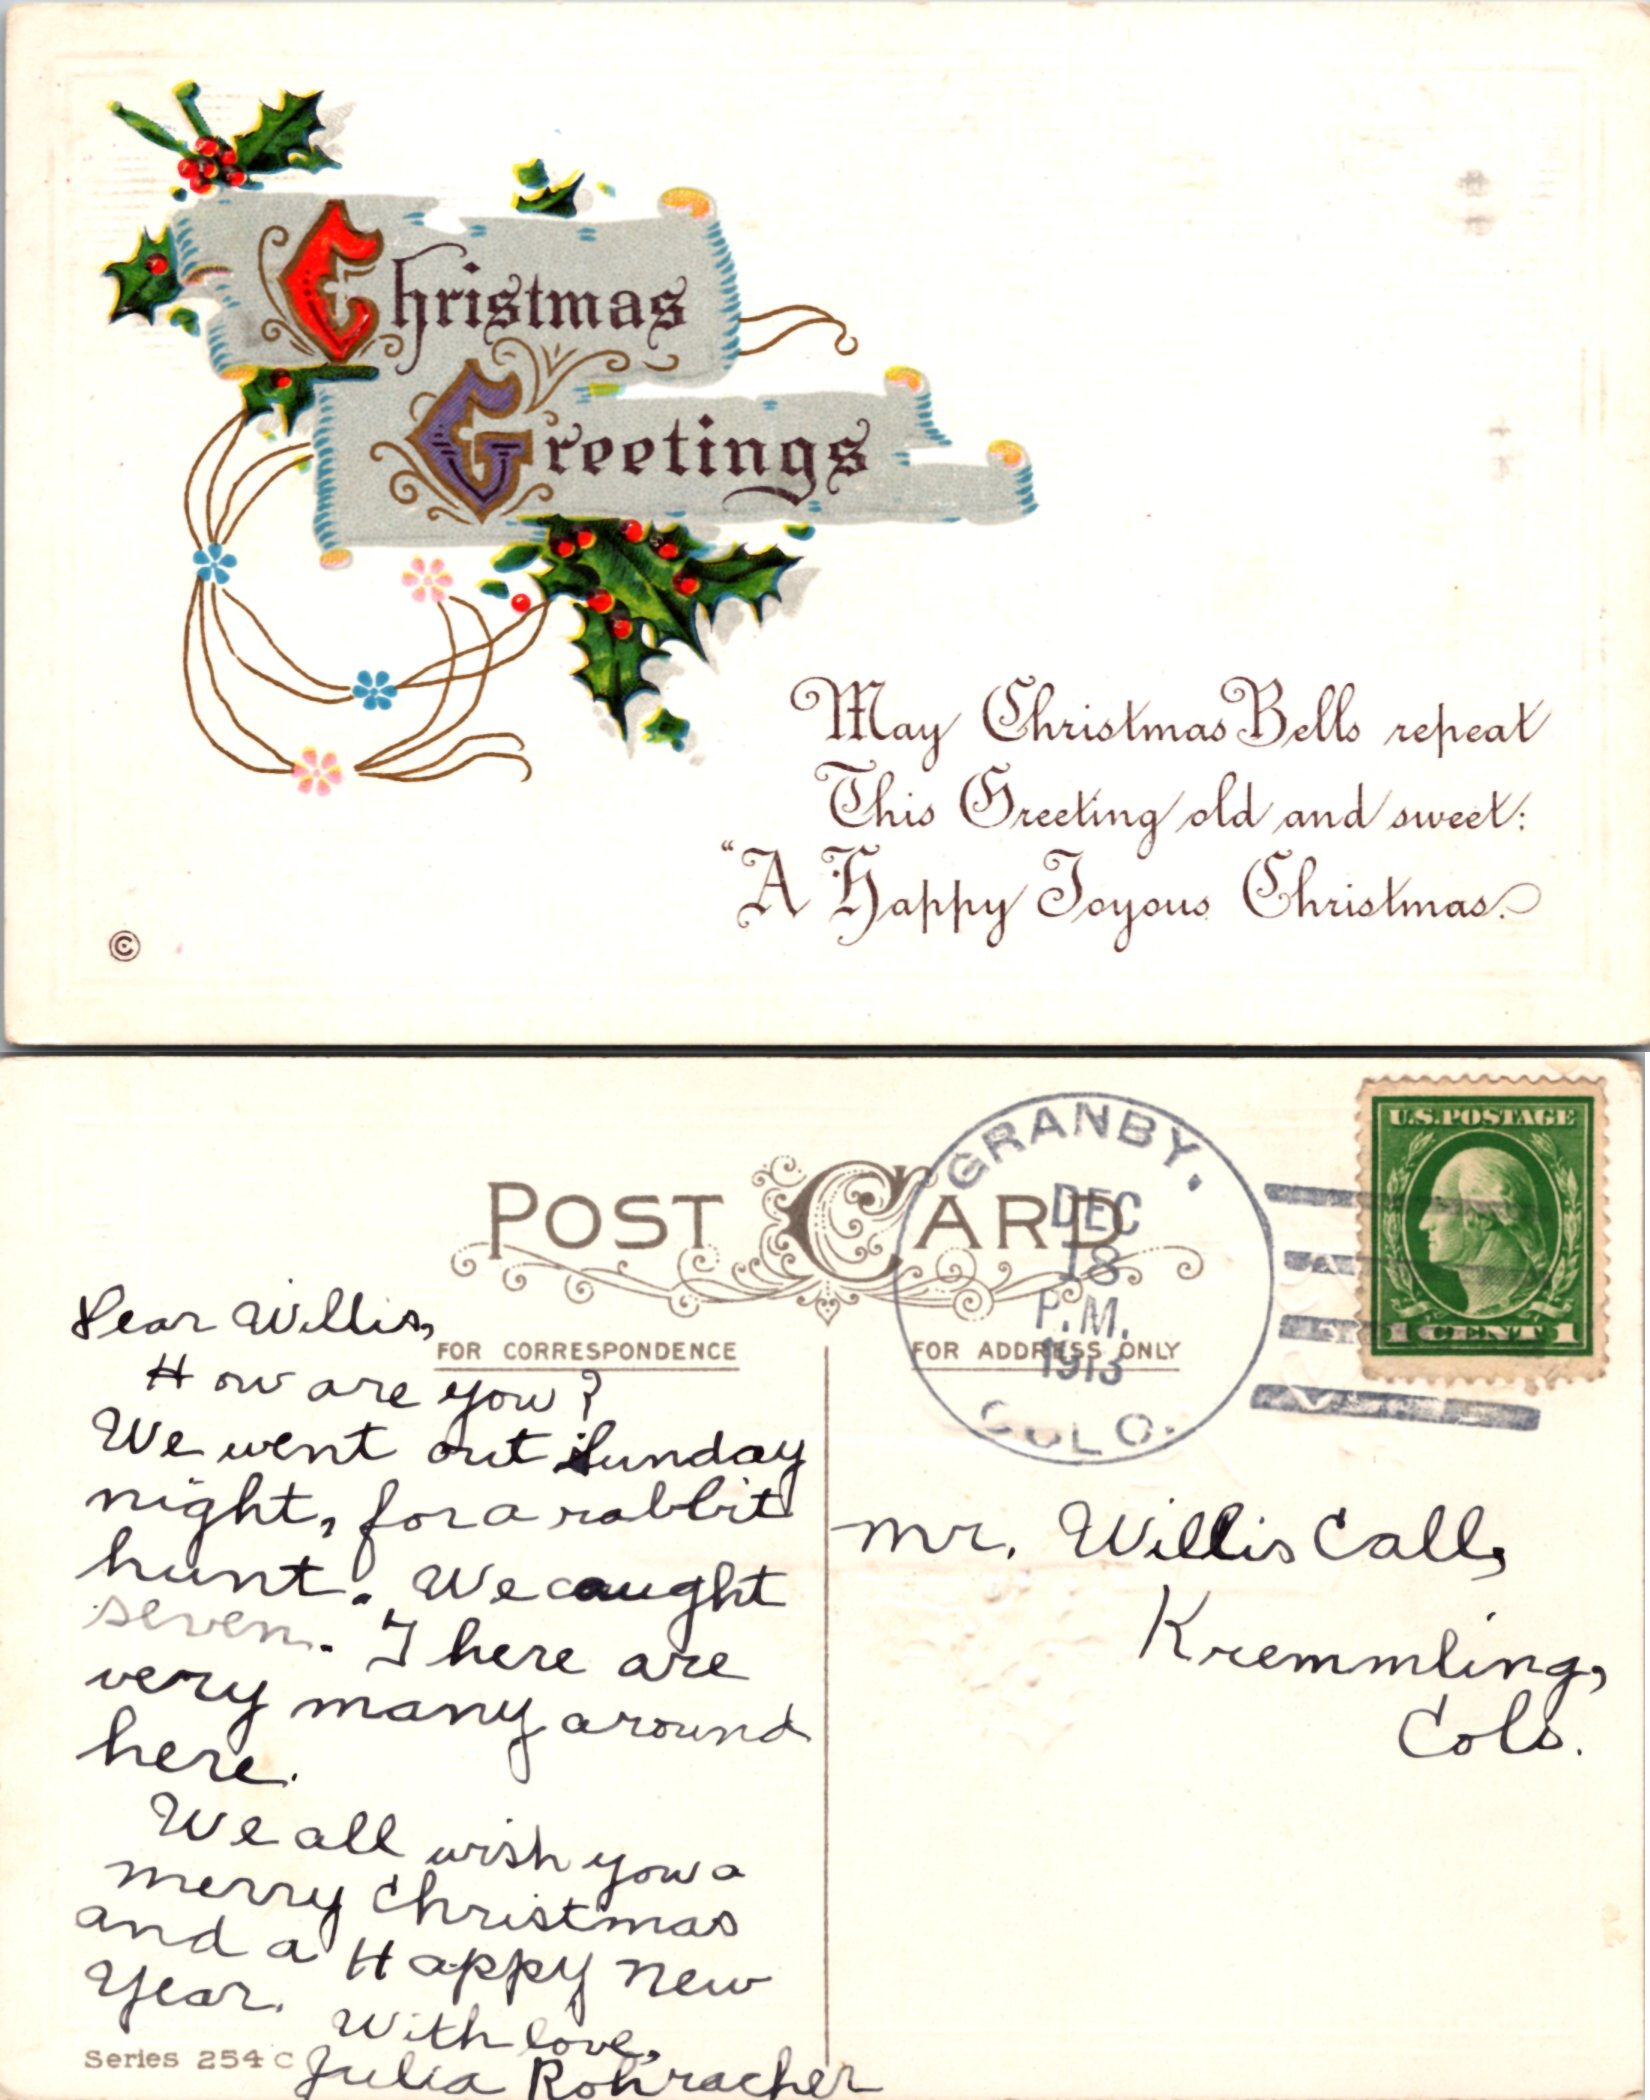 Christmas
Greetings
May Christmas Bells repeat
This Greeting old and sweet:
"A Happy Joyous Christmas.
©
POST CARD
GRANBY.
DEC
18
P.M.
1913
COLO.
U.S. POSTAGE
1 CENT 1
FOR CORRESPONDENCE
FOR ADDRESS ONLY
Dear Willis,
How are you?
We went out Sunday
night, for a rabbit
hunt. We caught
seven. There are
very many around
here.
We all wish you a
merry Christmas
and a Happy New
Year.
With love,
Julia Rohracher
Series 254 C
Mr. Willis Call,
Kremmling,
Colo.